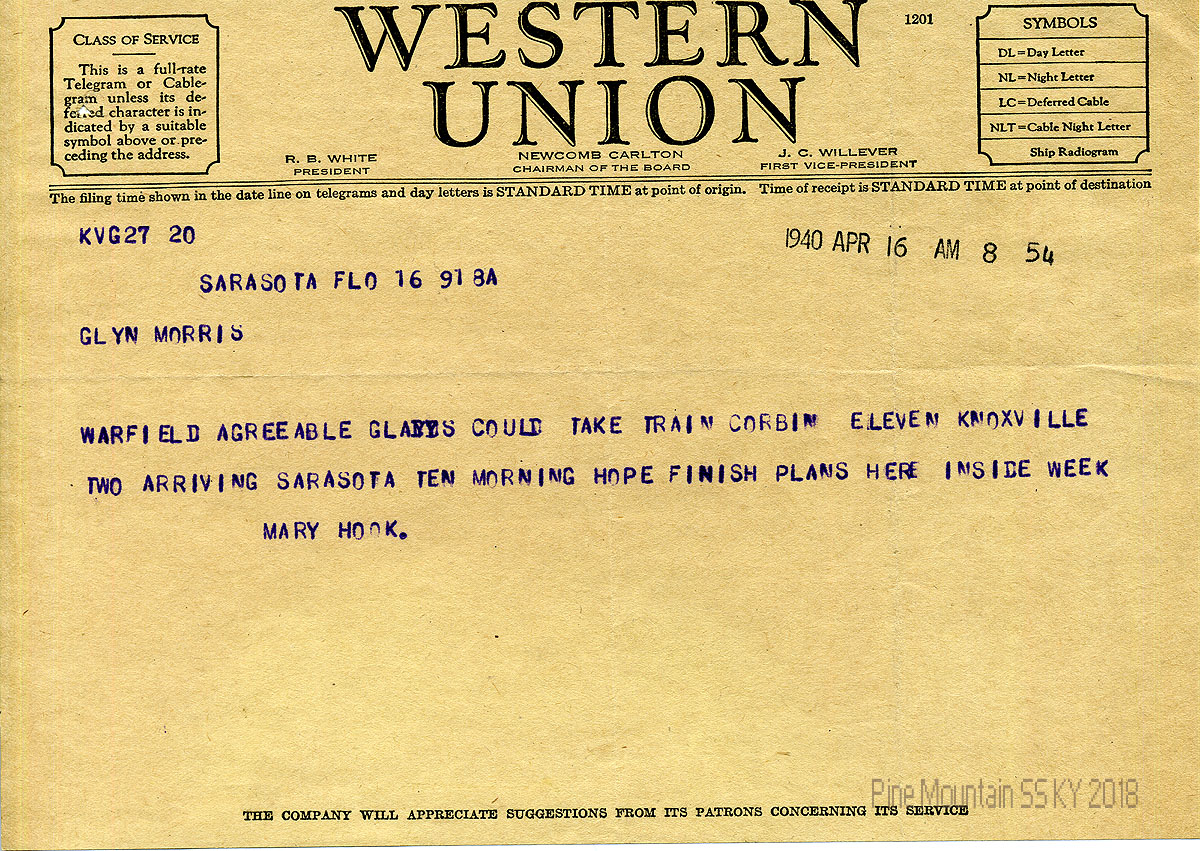 CLASS OF SERVICE
This is a full-rate
Telegram or Cable-
gram unless its de-
ferred character is in-
dicated by a suitable
symbol above or pre-
ceding the address.
WESTERN
UNION
1201
R. B. WHITE
PRESIDENT
NEWCOMB CARLTON
CHAIRMAN OF THE BOARD
J. C. WILLEVER
FIRST VICE-PRESIDENT
SYMBOLS
DL=Day Letter
NL=Night Letter
LC=Deferred Cable
NLT=Cable Night Letter
Ship Radiogram
The filing time shown in the date line on telegrams and day letters is STANDARD TIME at point of origin. Time of receipt is STANDARD TIME at point of destination
KVG27 20
1940 APR 16 AM 8 54
SARASOTA FLO 16 918A
GLYN MORRIS
WARFIELD AGREEABLE GLADYS COULD TAKE TRAIN CORBIN ELEVEN KNOXVILLE
TWO ARRIVING SARASOTA TEN MORNING HOPE FINISH PLANS HERE INSIDE WEEK
MARY HOOK.
Pine Mountain SS KY 2018
THE COMPANY WILL APPRECIATE SUGGESTIONS FROM ITS PATRONS CONCERNING ITS SERVICE